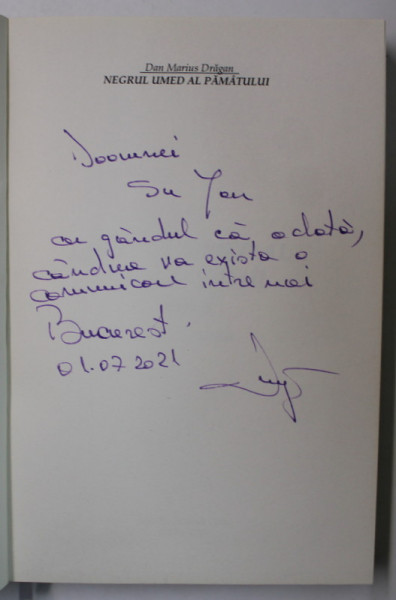 Dan Marius Drăgan
NEGRUL UMED AL PĂMÂTULUI
Doamnei
Su Yan
cu gândul că odată,
cândva va exista o
comunicare între noi
Bucurest.
01.07 2021